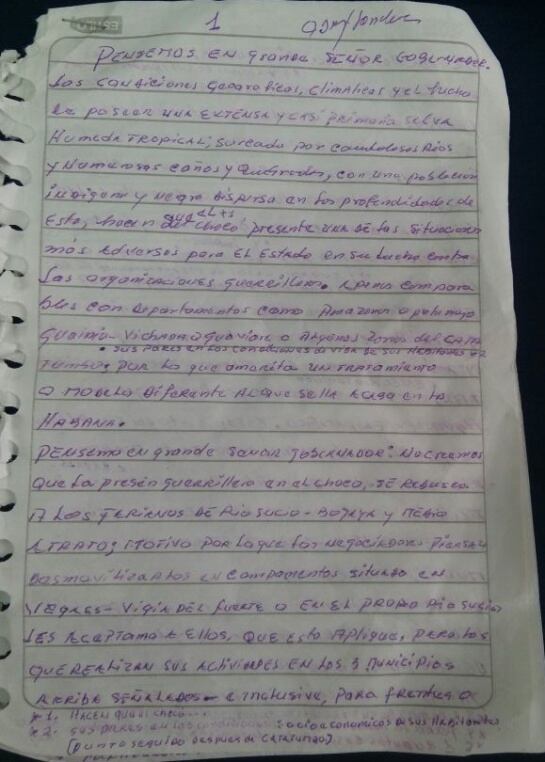 1
PENSEMOS EN grande SEÑOR GOBERNADOR.
Las condiciones Geograficas, climaticas y el hecho
de poseer una EXTENSA y casi primaria selva
Humeda TROPICAL; surcado por caudalosos Rios
y Numerosos caños y Quebradas, con una poblacion
indigena y negra dispersa en las profundidades de
Esta, hacen que el choco presente una de las situaciones
más Adversas para EL Estado en su lucha contra
las organizaciones guerrilleras.
bles con Departamentos como Amazonas o putumayo
Guainia - Vichada o Guaviare o Algunas zonas del CATA
* sus pares en las condiciones de vida de sus Habitantes
tumbo; por lo que amerita un tratamiento
o Modelo Diferente AL que se lleva en la
HABANA.
PENSEMO en grande señor gobernador: No creamos
Que la presen guerrillera en el choco, SE Reduce
A Los de Riosucio - Bojaya y Medio
ATRATO; Motivo por lo que los Negociadores Piensan
Desmovilizarlos en campamentos situado en
- Vigia DEL fuerte o EN EL PROPIO Riosucio
LES Aceptamo A Ellos, QUE Esto Aplique, PERO los
QUE REALIZAN SUS Actividades EN LOS 3 Municipios
Arriba SEÑALADOS - e inclusive, Para frentes o
*1. HACEN QUE el choco...
*2. sus pares en las condiciones socioeconomicas de sus Habitantes
(punto seguido despues de Catatumbo)